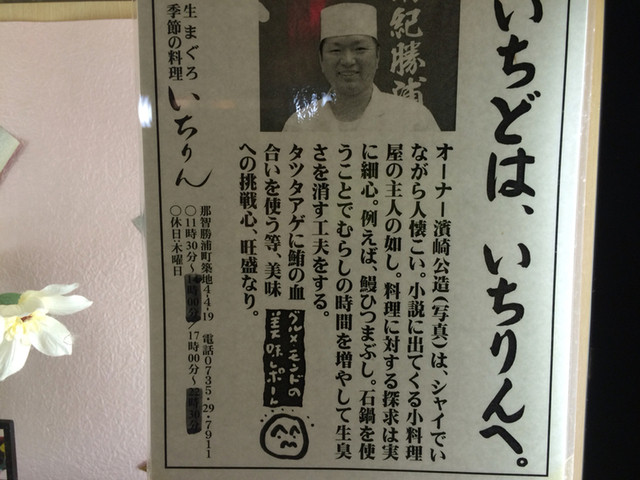 いちどは、いちりんへ。
紀勝浦
オーナー濱崎公造(写真)は、シャイでい
ながら人懐こい。小説に出てくる小料理
屋の主人の如し。料理に対する探求は実
に細心。例えば、鰻ひつまぶし。石鍋を使
うことでむらしの時間を増やして生臭
さを消す工夫をする。
タツタアゲに鮪の血
合いを使う等、美味
への挑戦心、旺盛なり。
グルメモンドの
美味レポート
生まぐろ
季節の料理
いちりん
那智勝浦町築地4-4-19 電話0735-29-7911
○11時30分〜14時00分/17時00分〜22時30分
○休日:木曜日